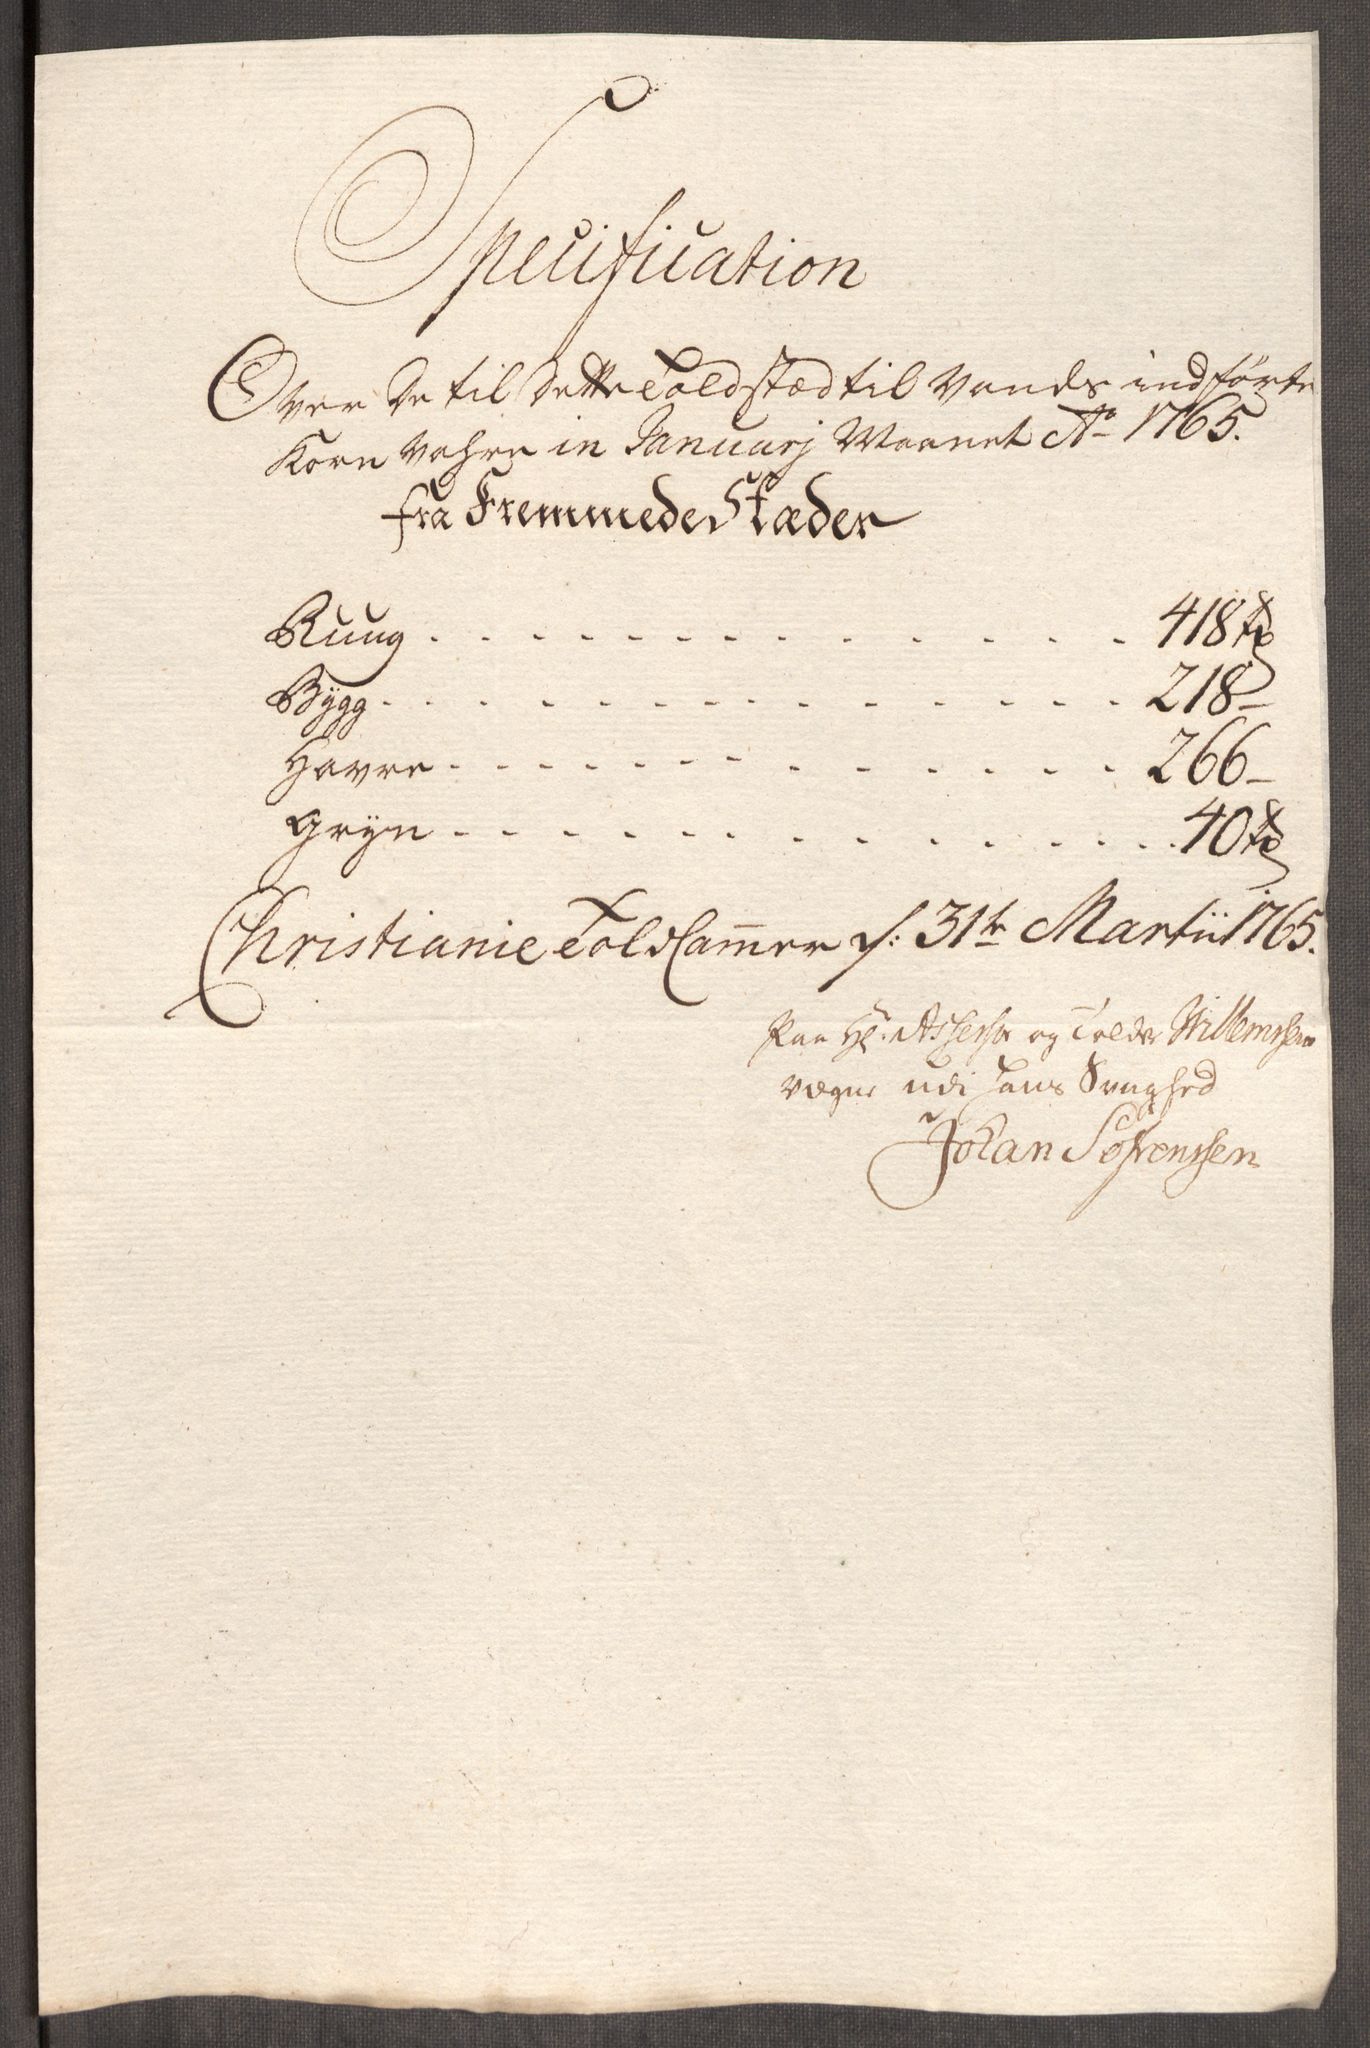 Specification
Over De til Dette Toldstæd til Vands indførte
Korn Vahre in Januarj Maanet Aº 1765.
fra Fremmede Stæder
Ruug . . . . . . . . . . . . . 418 tr
Bygg . . . . . . . . . . . . . 218 –
Havre . . . . . . . . . . . . . 266 –
Gryn . . . . . . . . . . . . . 40 tr
Christianie Told Cam̅er d: 31te Martii 1765.
Paa Hr. Assessor og Tolder Willemssens
Vegne udi hans Svaghed
Johan Sørenssen